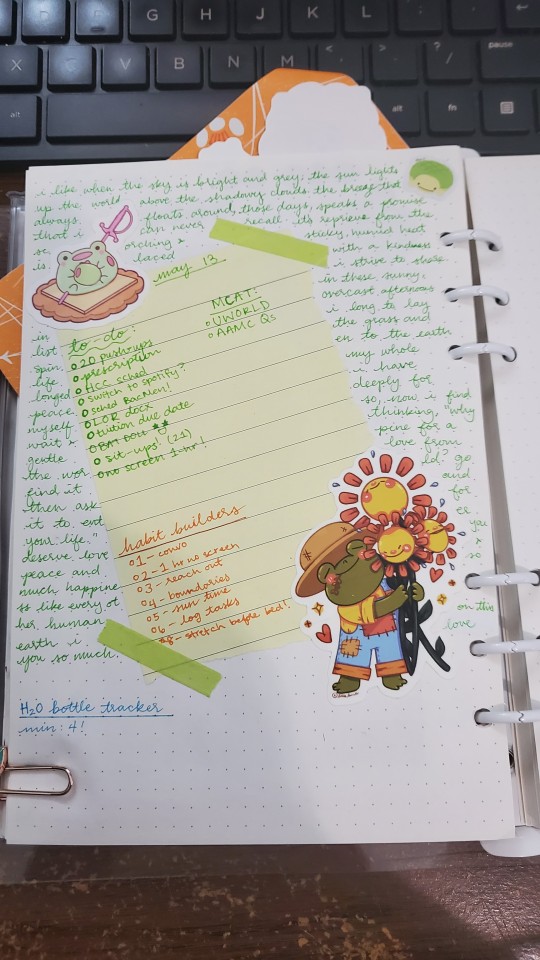 D G H J K L
X C V B N M < > ? / pause
alt alt fn
i like when the sky is bright and grey; the sun lights
up the world above the shadowy clouds. the breeze that
always floats around those days, speaks a promise
that i can never recall. its reprieve from the
sc orching & sticky, humid heat
is laced with a kindness
i strive to share
in these sunny,
overcast afternoons
i long to lay
in the grass and
list en to the earth
spin. my whole
life i have
longed deeply for
peace. so, now i find
myself thinking, "why
wait & pine for a
gentle love from
the wor ld? go
find it and
then ask for
it to ent er
your life." you
deserve love &
peace and so
much happine
ss like every ot
her human on this
earth i love
you so much.
may 13
to-do:
20 push-ups
prescription
HCC sched
switch to spotify?
sched BacMen!
LOR docx
tuition due date
sit-ups! (21)
no screen 1 hr!
MCAT:
UWORLD
AAMC Qs
habit builders
1 - convo
2 - 1 hr no screen
3 - reach out
4 - boundaries
5 - sun time
6 - log tasks
- stretch before bed!
H2O bottle tracker
min: 4!